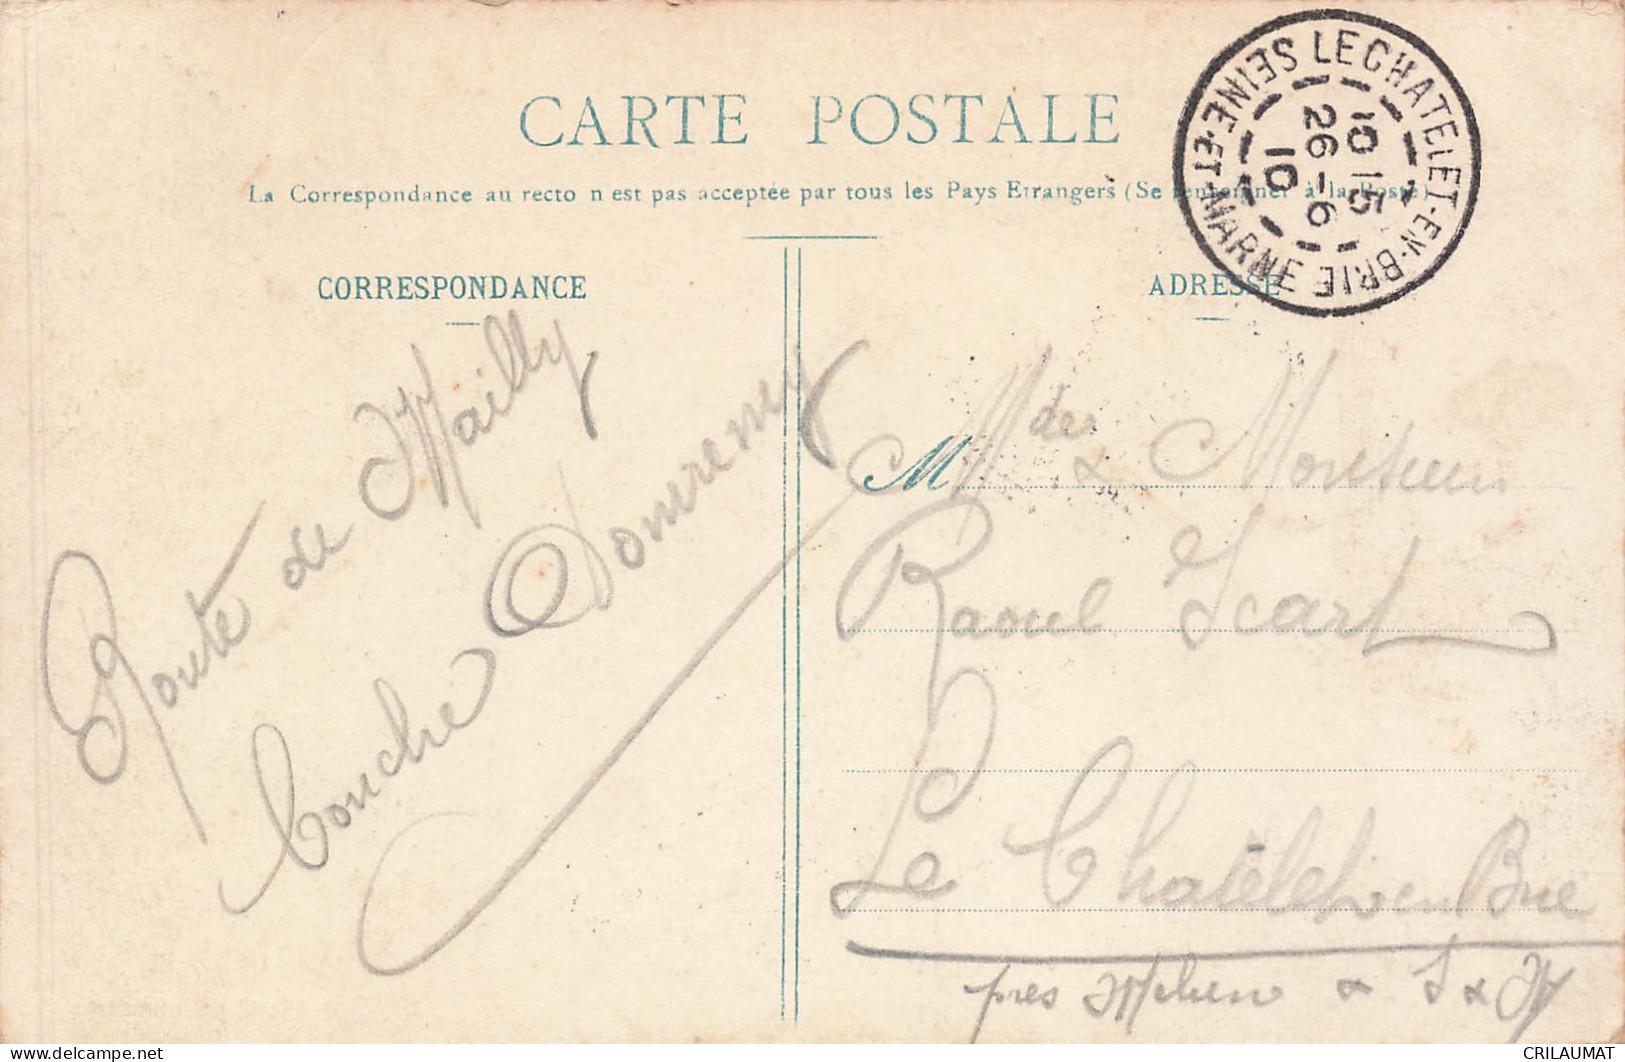 CARTE POSTALE
La Correspondance au recto n'est pas acceptée par tous les Pays Etrangers (Se renseigner à la Poste)
LE CHATELET-EN-BRIE
SEINE-ET-MARNE
10 15
26-6
10
CORRESPONDANCE
Route de Mailly
Couche Domremy
ADRESSE
M Mdes & Monsieur
Raoul Icart
Le Châtelet en Brie
près Melun S & M
CRILAUMAT